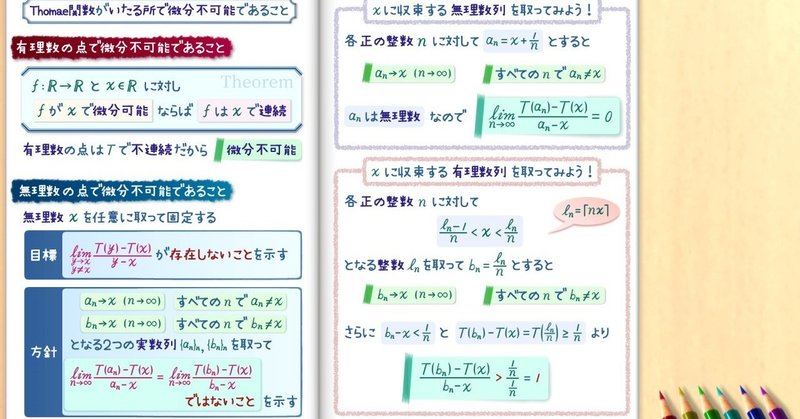 Thomae関数がいたる所で微分不可能であること
有理数の点で微分不可能であること
Theorem
f : R → R と x ∈ R に対し
f が x で微分可能 ならば f は x で連続
有理数の点は T で不連続だから 微分不可能
無理数の点で微分不可能であること
無理数 x を任意に取って固定する
目標 lim_{y→x, y≠x} (T(y)-T(x))/(y-x) が存在しないことを示す
方針
aₙ→x (n→∞) すべての n で aₙ≠x
bₙ→x (n→∞) すべての n で bₙ≠x
となる2つの実数列 {aₙ}ₙ, {bₙ}ₙ を取って
lim_{n→∞} (T(aₙ)-T(x))/(aₙ-x) = lim_{n→∞} (T(bₙ)-T(x))/(bₙ-x)
ではないこと を示す
x に収束する 無理数列 を取ってみよう！
各 正の整数 n に対して aₙ = x + 1/n とすると
aₙ→x (n→∞) すべての n で aₙ≠x
aₙ は無理数 なので lim_{n→∞} (T(aₙ)-T(x))/(aₙ-x) = 0
x に収束する 有理数列 を取ってみよう！
各 正の整数 n に対して
ℓₙ=⌈nx⌉
(ℓₙ-1)/n < x < ℓₙ/n
となる整数 ℓₙ を取って bₙ = ℓₙ/n とすると
bₙ→x (n→∞) すべての n で bₙ≠x
さらに bₙ-x < 1/n と T(bₙ)-T(x) = T(ℓₙ/n) ≥ 1/n より
(T(bₙ)-T(x))/(bₙ-x) > (1/n)/(1/n) = 1